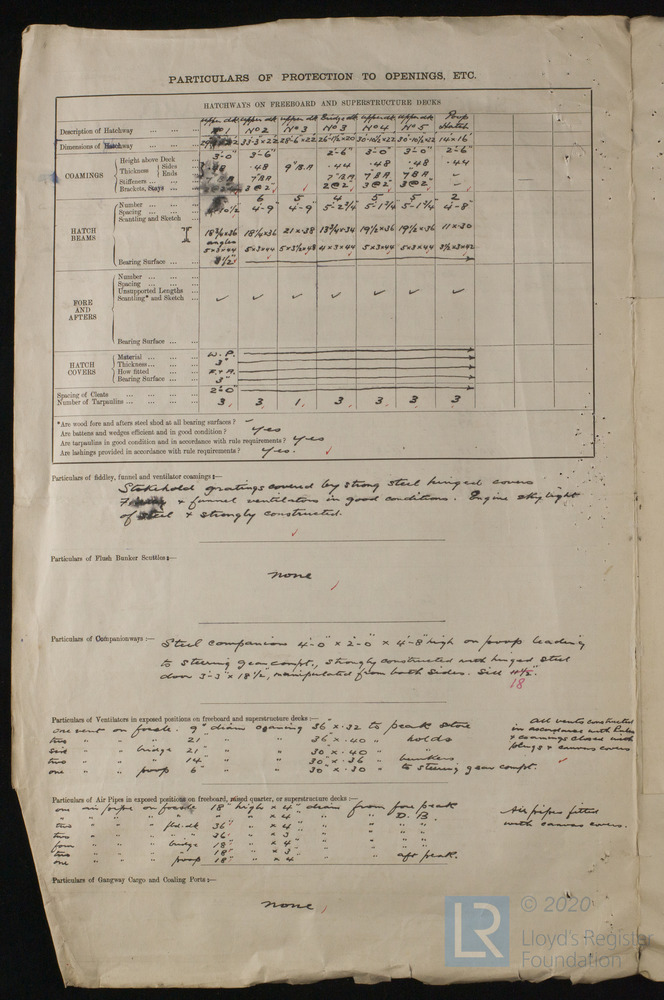 PARTICULARS OF PROTECTION TO OPENINGS, ETC.
HATCHWAYS ON FREEBOARD AND SUPERSTRUCTURE DECKS
Upper dk Upper dk Upper dk Bridge dk Upper dk Upper dk Poop
Description of Hatchway No 1 No 2 No 3 No 3 No 4 No 5 Hatch
Dimensions of Hatchway 33-3 x 22 28-6 x 22 26-1½ x 20 30-10½ x 22 30-10½ x 22 14 x 16
COAMINGS
Height above Deck 3-0" 3-6" 2-6" 3-0" 3-0" 2-6"
Thickness Sides .48 9" B.A .44 .48 .48 .44
Ends
Stiffeners 7" B A 7" B A 7 B A 7 B A
Brackets, Stays 3 @ 2 2 @ 2 3 @ 2 3 @ 2
HATCH BEAMS
Number 6 5 4 5 5 2
Spacing 4-9" 4-9" 5-2¼" 5-1¼ 5-1¼ 4-8"
Scantling and Sketch
18¾ x 36 18¼ x 36 21 x 38 18¾ x 34 19½ x 36 19½ x 36 11 x 30
angles
5 x 3 x 44 5 x 3 x 44 5 x 3½ x 48 4 x 3 x 44 5 x 3 x 44 5 x 3 x 44 3½ x 3 x 42
Bearing Surface 3½"
FORE AND AFTERS
Number
Spacing
Unsupported Lengths
Scantling* and Sketch
Bearing Surface
HATCH COVERS
Material W. P.
Thickness 3"
How fitted F. & A.
Bearing Surface 3"
Spacing of Cleats 2'-0"
Number of Tarpaulins 3 3 1 3 3 3 3
*Are wood fore and afters steel shod at all bearing surfaces?
Are battens and wedges efficient and in good condition? Yes
Are tarpaulins in good condition and in accordance with rule requirements? Yes
Are lashings provided in accordance with rule requirements? Yes.
Particulars of fiddley, funnel and ventilator coamings:—
Stokehold gratings covered by strong steel hinged covers
& funnel ventilators in good conditions. Engine skylight
of steel & strongly constructed.
Particulars of Flush Bunker Scuttles:—
none
Particulars of Companionways:—
Steel companion 4'-0" x 2'-0" x 4'-8" high on poop leading
to steering gear compt., strongly constructed with hinged steel
door 3-3" x 18½", manipulated from both sides. Sill
18
Particulars of Ventilators in exposed positions on freeboard and superstructure decks:—
one vent on focsle. 9" diam opening 36" x .32 to peak store
two " " 21" " " 36" x .40 " holds
" bridge 21" " " 30" x .40 " "
two " " 14" " " 30" x .36 " bunkers
one " poop 6" " " 30" x .30 " to steering gear compt.
All vents constructed
in accordance with Rules
& coamings closed with
plugs & canvas covers
Particulars of Air Pipes in exposed positions on freeboard, raised quarter, or superstructure decks:—
one air pipe on focsle 18" high x 4" diam from fore peak
" " " " " " x 4" " " D. B.
two " " fbd. dk 36" " x 4" " " "
two " " " 36" " x 3" " " "
four " " bridge 18" " x 4 " " "
two " " " 18" " x 3" " " "
one " " poop 18" " x 4 " " aft peak.
Air pipes fitted
with canvas covers.
Particulars of Gangway Cargo and Coaling Ports:—
none
LR
© 2020
Lloyd's Register
Foundation